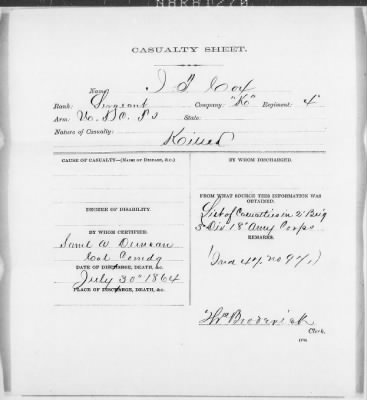 CASUALTY SHEET.
Name, J T Cox
Rank: Sergeant Company: "K" Regiment: 4"
Arm: State:
Nature of Casualty: Killed
CAUSE OF CASUALTY—(NAME OF DISEASE, &c.)
DEGREE OF DISABILITY.
BY WHOM CERTIFIED.
Saml A Duncan
Col Comdg
DATE OF DISCHARGE, DEATH, &c.
July 30" 1864
PLACE OF DISCHARGE, DEATH, &c.
BY WHOM DISCHARGED.
FROM WHAT SOURCE THIS INFORMATION WAS
OBTAINED.
List of Casualties in 2" Brig
3" Div 18" Army Corps
REMARKS.
Wm Broderick
Clerk.